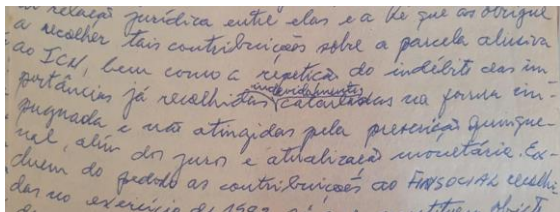 relação jurídica entre elas e a Ré que as obrigue
a recolher tais contribuições sobre a parcela alusiva
ao ICM, bem como a repetição do indébito das im-
portâncias já recolhidas indevidamente, na forma im-
pugnada e não atingidas pela prescrição quinque-
nal, além dos juros e atualização monetária. Ex-
cluem do pedido as contribuições ao FINSOCIAL recolhi-
das no exercício de